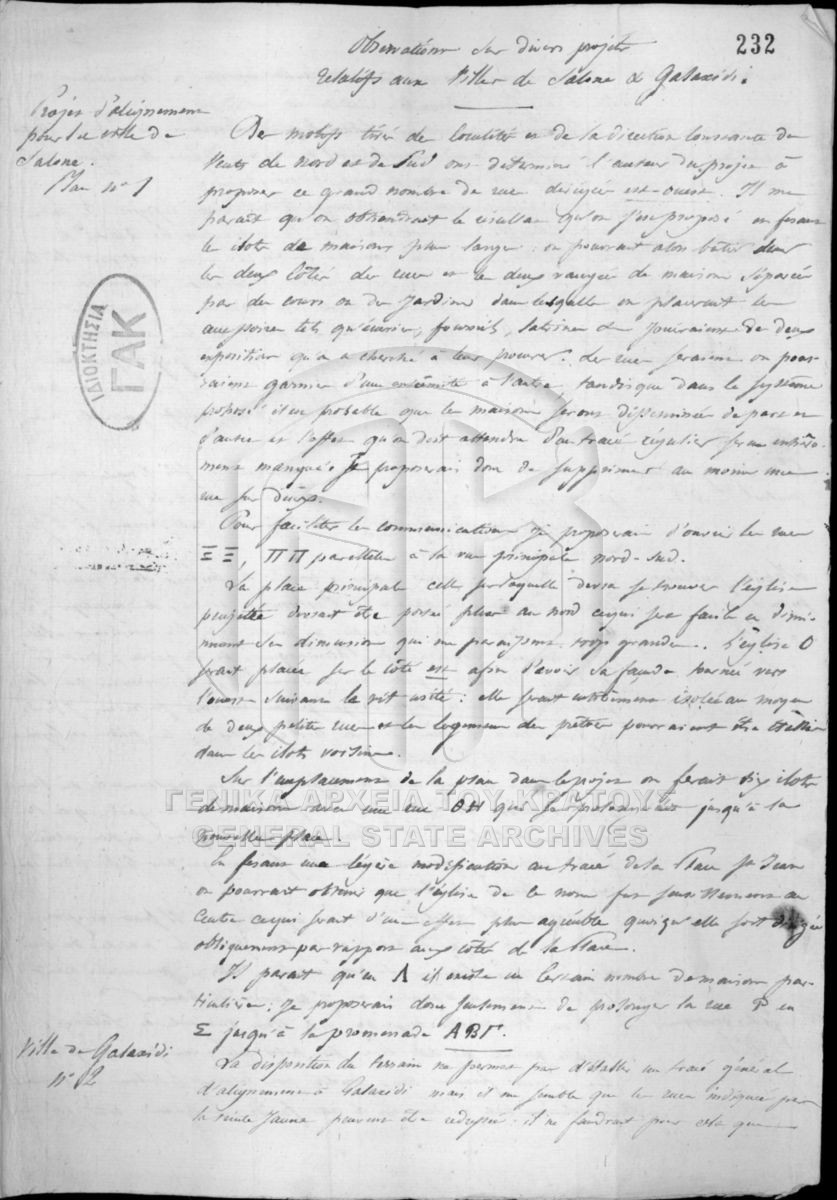 232
Observations sur divers projets
relatifs aux Villes de Salone & Galaxidi.
Projet d'alignement
pour la ville de
Salone.
Plan n° 1
Des motifs tirés de localités et de la direction constante des
vents de Nord et de Sud ont déterminé l'auteur du projet à
proposer ce grand nombre de rues dirigées est-ouest. Il me
parait qu'on obtiendrait le résultat qu'on s'est proposé en fesant
les ilots de maisons plus larges: on pourrait alors bâtir des
les deux côtés des rues et les deux rangées de maisons séparées
par des cours ou des jardins dans lesquelles on placerait les
accessoires tels qu'écuries, fournils, latrines & jouiraient de deux
expositions qu'on a cherché à leur procurer. Les rues seraient ou pour-
raient garnies d'une extrémité à l'autre tandisque dans le système
proposé il est probable que les maisons seront disséminées de part et
d'autre et l'effet qu'on doit attendre d'un tracé régulier sera entière-
ment manqué. Je proposerais donc de supprimer au moins une
rue sur deux.
Pour faciliter les communications je proposerais d'ouvrir les rues
ΞΞ, ΠΠ parallèles à la rue principale nord-sud.
La place principale celle sur laquelle devra se trouver l'église
projettée devrait être portée plus au nord ce qui sera facile en dimi-
nuant ses dimensions qui me paraissent trop grandes. L'église O
serait placée sur le côté est afin d'avoir sa façade tournée vers
l'ouest suivant le rit usité: elle serait entièrement isolée au moyen
de deux petites rues et les logemens des prêtres pourraient être établis
dans les ilots voisins.
Sur l'emplacement de la place dans le projet on ferait dix ilots
de maisons avec une rue ΘΗ qui se prolongerait jusqu'à la
nouvelle place.
En fesant une légère modification au tracé de la Place St Jean
on pourrait obtenir que l'église de ce nom fut sensiblement au
centre ce qui serait d'un effet plus agréable quoiqu'elle soit dirigée
obliquement par rapport aux côtés de la Place.
Il parait qu'en Λ il existe un certain nombre de maisons par-
ticulières: je proposerais donc seulement de prolonger la rue P en
Σ jusqu'à la promenade ΑΒΓ.
Ville de Galaxidi
n° 2
La disposition du terrain ne permet pas d'établir un tracé général
d'alignement à Galaxidi mais il me semble que les rues indiquées par
la teinte jaune peuvent être redressées: il ne faudrait pour cela que
ΙΔΙΟΚΤΗΣΙΑ
ΓΑΚ
ΓΕΝΙΚΑ ΑΡΧΕΙΑ ΤΟΥ ΚΡΑΤΟΥΣ
GENERAL STATE ARCHIVES